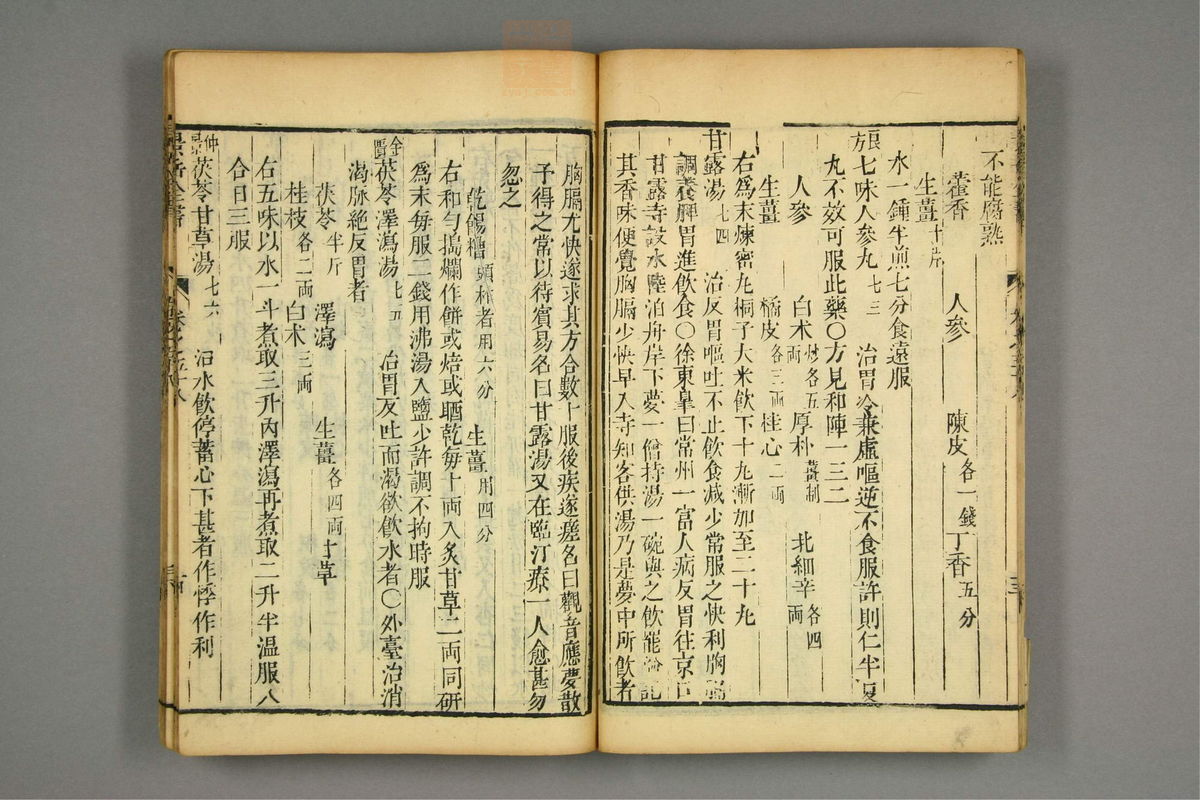 不能腐熟
藿香 人參 陳皮各一錢 丁香五分
生薑十片
水一鍾半煎七分食遠服
良方 七味人參丸七三 治胃冷兼虛嘔逆不食服許則仁半夏
丸不效可服此藥〇方見和陣一三二
人參 白术炒各五兩 厚朴薑制 北細辛各四兩
生薑 橘皮各三兩 桂心二兩
右為末煉密丸桐子大米飲下十丸漸加至二十丸
甘露湯七四 治反胃嘔吐不止飲食減少常服之快利胸膈
調養脾胃進飲食〇徐東皋曰常州一富人病反胃往京口
甘露寺設水陸泊舟岸下夢一僧持湯一碗與之飲罷 記
其香味便覺胸膈少快早入寺知客供湯乃是夢中所飲者
胸膈尤快遂求其方合數十服後疾遂瘥名曰觀音應夢散
予得之常以待賓易名曰甘露湯又在臨汀療一人愈甚勿
忽之
乾餳糟頭柞者用六分 生薑用四分
右和勻搗爛作餅或焙或晒乾每十兩入炙甘草二兩同研
為末每服二錢用沸湯入鹽少許調不拘時服
金匱 茯苓澤瀉湯七五 治胃反吐而渴欲飲水者〇外臺治消
渴脉絕反胃者
茯苓半斤 澤瀉 生薑各四兩 甘草
桂枝各二兩 白术三兩
右五味以水一斗煮取三升內澤瀉再煮取二升半溫服八
合日三服
仲景 茯苓甘草湯七六 治水飲停蓄心下甚者作悸作利